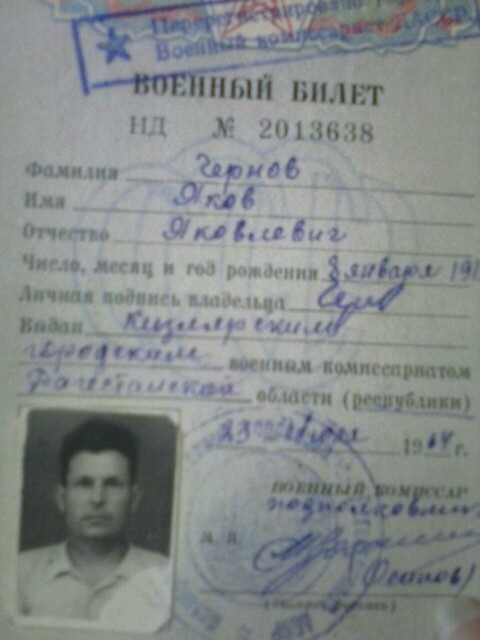 Перерегистрирован
Военный комиссариат
ВОЕННЫЙ БИЛЕТ
НД № 2013638
Фамилия Чернов
Имя Яков
Отчество Яковлевич
Число, месяц и год рождения 8 января 191
Личная подпись владельца
Выдан Кизлярским
городским военным комиссариатом
Дагестанской области (республики)
23 1964 г.
ВОЕННЫЙ КОМИССАР
подполковник
М. П.
Осипов)